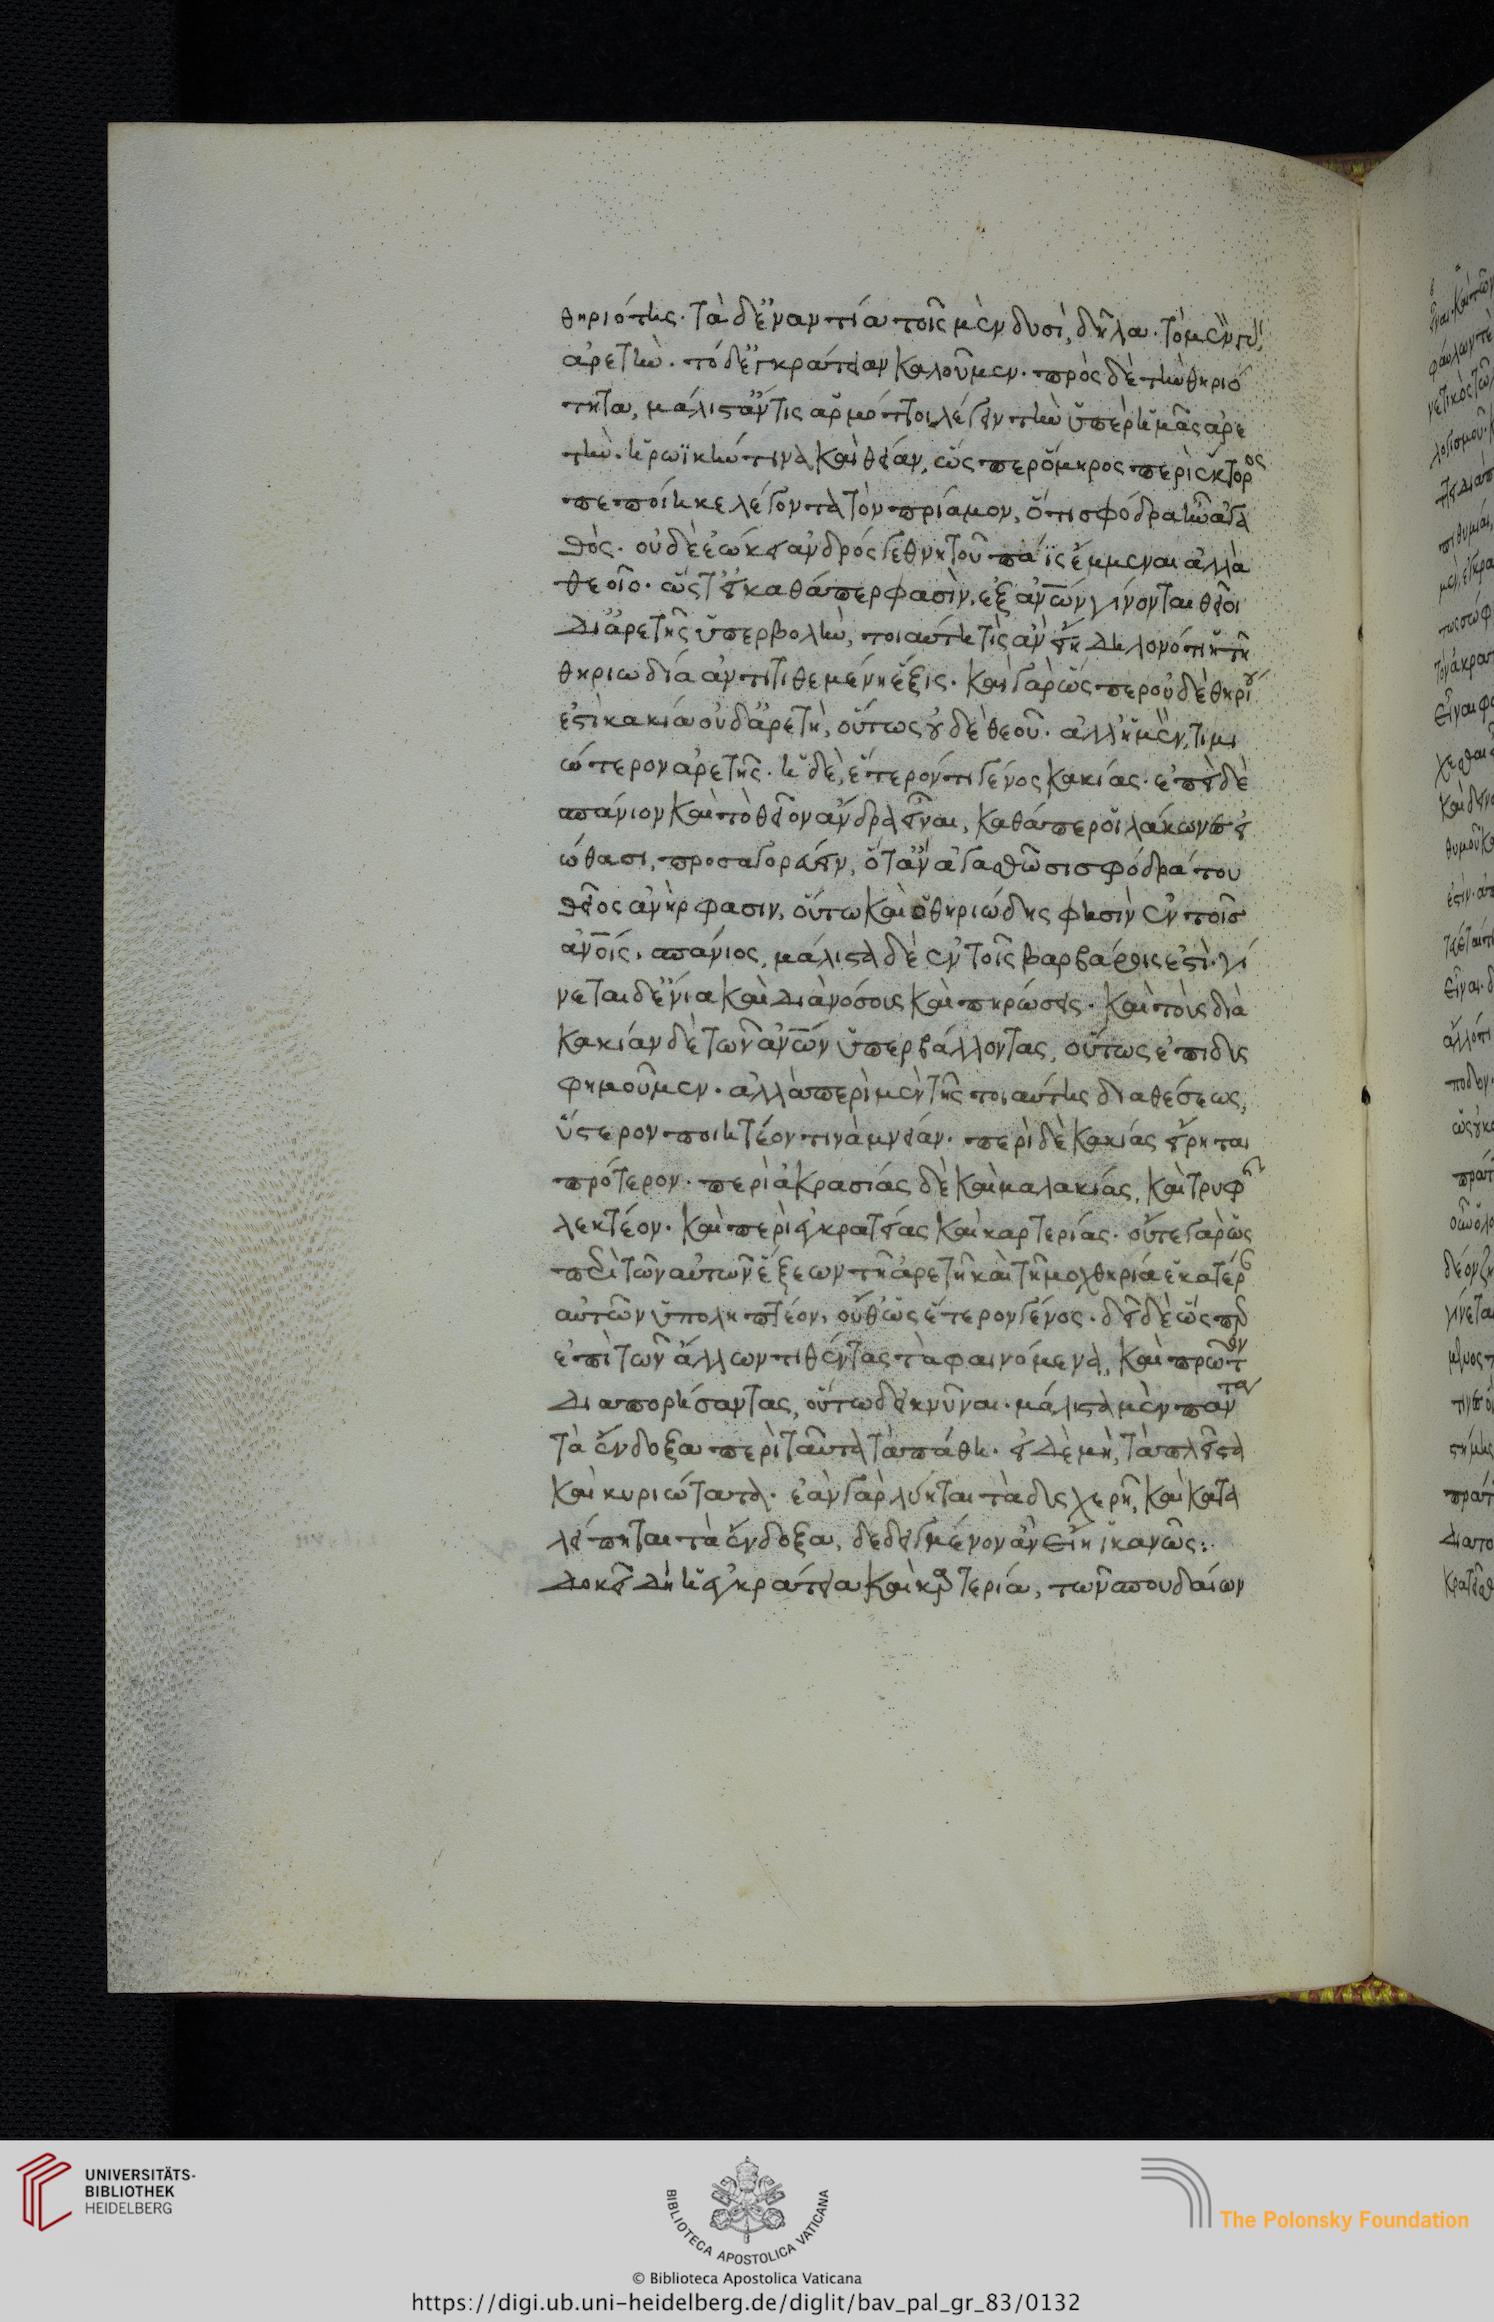 θηριότης. τὰ δ' ἐναντία τοῖς μὲν δυσὶ, δῆλα. τὸ μὲν γὰρ,
ἀρετὴν. τὸ δ' ἐγκράτειαν καλοῦμεν. πρὸς δὲ τὴν θηριό
τητα, μάλιστ' ἄν τις ἁρμόττοι λέγειν τὴν ὑπὲρ ἡμᾶς ἀρε
τὴν. ἡρωϊκήν τινα καὶ θείαν, ὥς περ ὅμηρος περὶ ἕκτορος
πεποίηκε λέγοντα τὸν πρίαμον, ὅτι σφόδρα ἦν ἀγα
θὸς. οὐδὲ ἐώκει ἀνδρός γε θνητοῦ πάϊς ἔμμεναι ἀλλὰ
θεοῖο. ὥστ' εἰ καθάπερ φασὶν, ἐξ ἀνων γίνονται θεοι
δι' ἀρετῆς ὑπερβολὴν, τοιαύτη τὶς ἂν εἴη δηλονότι ἡ τῆ
θηριωδία ἀντιτιθεμένη ἕξις. καὶ γὰρ ὥς περ οὐδὲ θηρίου
ἐστὶ κακία οὐδ' ἀρετὴ, οὕτως οὐδὲ θεοῦ. ἀλλ' ἡ μὲν, τιμι
ώτερον ἀρετῆς. ἡ δὲ, ἕτερόν τι γένος κακίας. ἐπεὶ δὲ
σπάνιον καὶ τὸ θεῖον ἄνδρα εἶναι, καθάπερ οἱ λάκωνες εἰ
ώθασι, προσαγορεύειν, ὅταν ἀγασθῶσι σφόδρά του
θεῖος ἀνὴρ φασιν, οὕτω καὶ ὁ θηριώδης φησὶν ἐν τοῖσ
ἀνοίς, σπάνιος, μάλιστα δὲ ἐν τοῖς βαρβάροις ἐστὶ. γί
νεται δ' ἔνια καὶ διὰ νόσους καὶ πηρώσεις. καὶ τοὺς διὰ
κακίαν δὲ τῶν ἀνων ὑπερβάλλοντας, οὕτως ἐπιδυς
φημοῦμεν. ἀλλὰ περὶ μὲν τῆς τοιαύτης διαθέσεως,
ὕστερον ποιητέον τινὰ μνείαν. περὶ δὲ κακίας εἴρηται
πρότερον. περὶ ἀκρασίας δὲ καὶ μαλακίας, καὶ τρυφῆς
λεκτέον. καὶ περὶ ἐγκρατείας καὶ καρτερίας. οὔτε γὰρ ὡς
περὶ τῶν αὐτῶν ἕξεων τῆ ἀρετῆ καὶ τῆ μοχθηρία ἑκατέραν
αὐτῶν ὑποληπτέον, οὔθ' ὡς ἕτερον γένος. δεῖ δὲ ὥς περ
ἐπὶ τῶν ἄλλων τιθέντας τὰ φαινόμενα, καὶ πρῶτον
διαπορήσαντας, οὕτω δεικνύναι. μάλιστα μὲν πάντα
τὰ ἔνδοξα περὶ ταῦτα τὰ πάθη. εἰ δὲ μὴ, τὰ πλεῖστα
καὶ κυριώτατα. ἐὰν γὰρ λύηται τὰ δυς χερῆ, καὶ κατα
λείπηται τὰ ἔνδοξα, δεδειγμένον ἂν εἴη ἱκανῶς:
Δοκεῖ δὴ ἡ ἐγκράτεια καὶ καρτερία, τῶν σπουδαίων
UNIVERSITÄTS-
BIBLIOTHEK
HEIDELBERG
BIBLIOTECA APOSTOLICA VATICANA
© Biblioteca Apostolica Vaticana
The Polonsky Foundation
https://digi.ub.uni-heidelberg.de/diglit/bav_pal_gr_83/0132